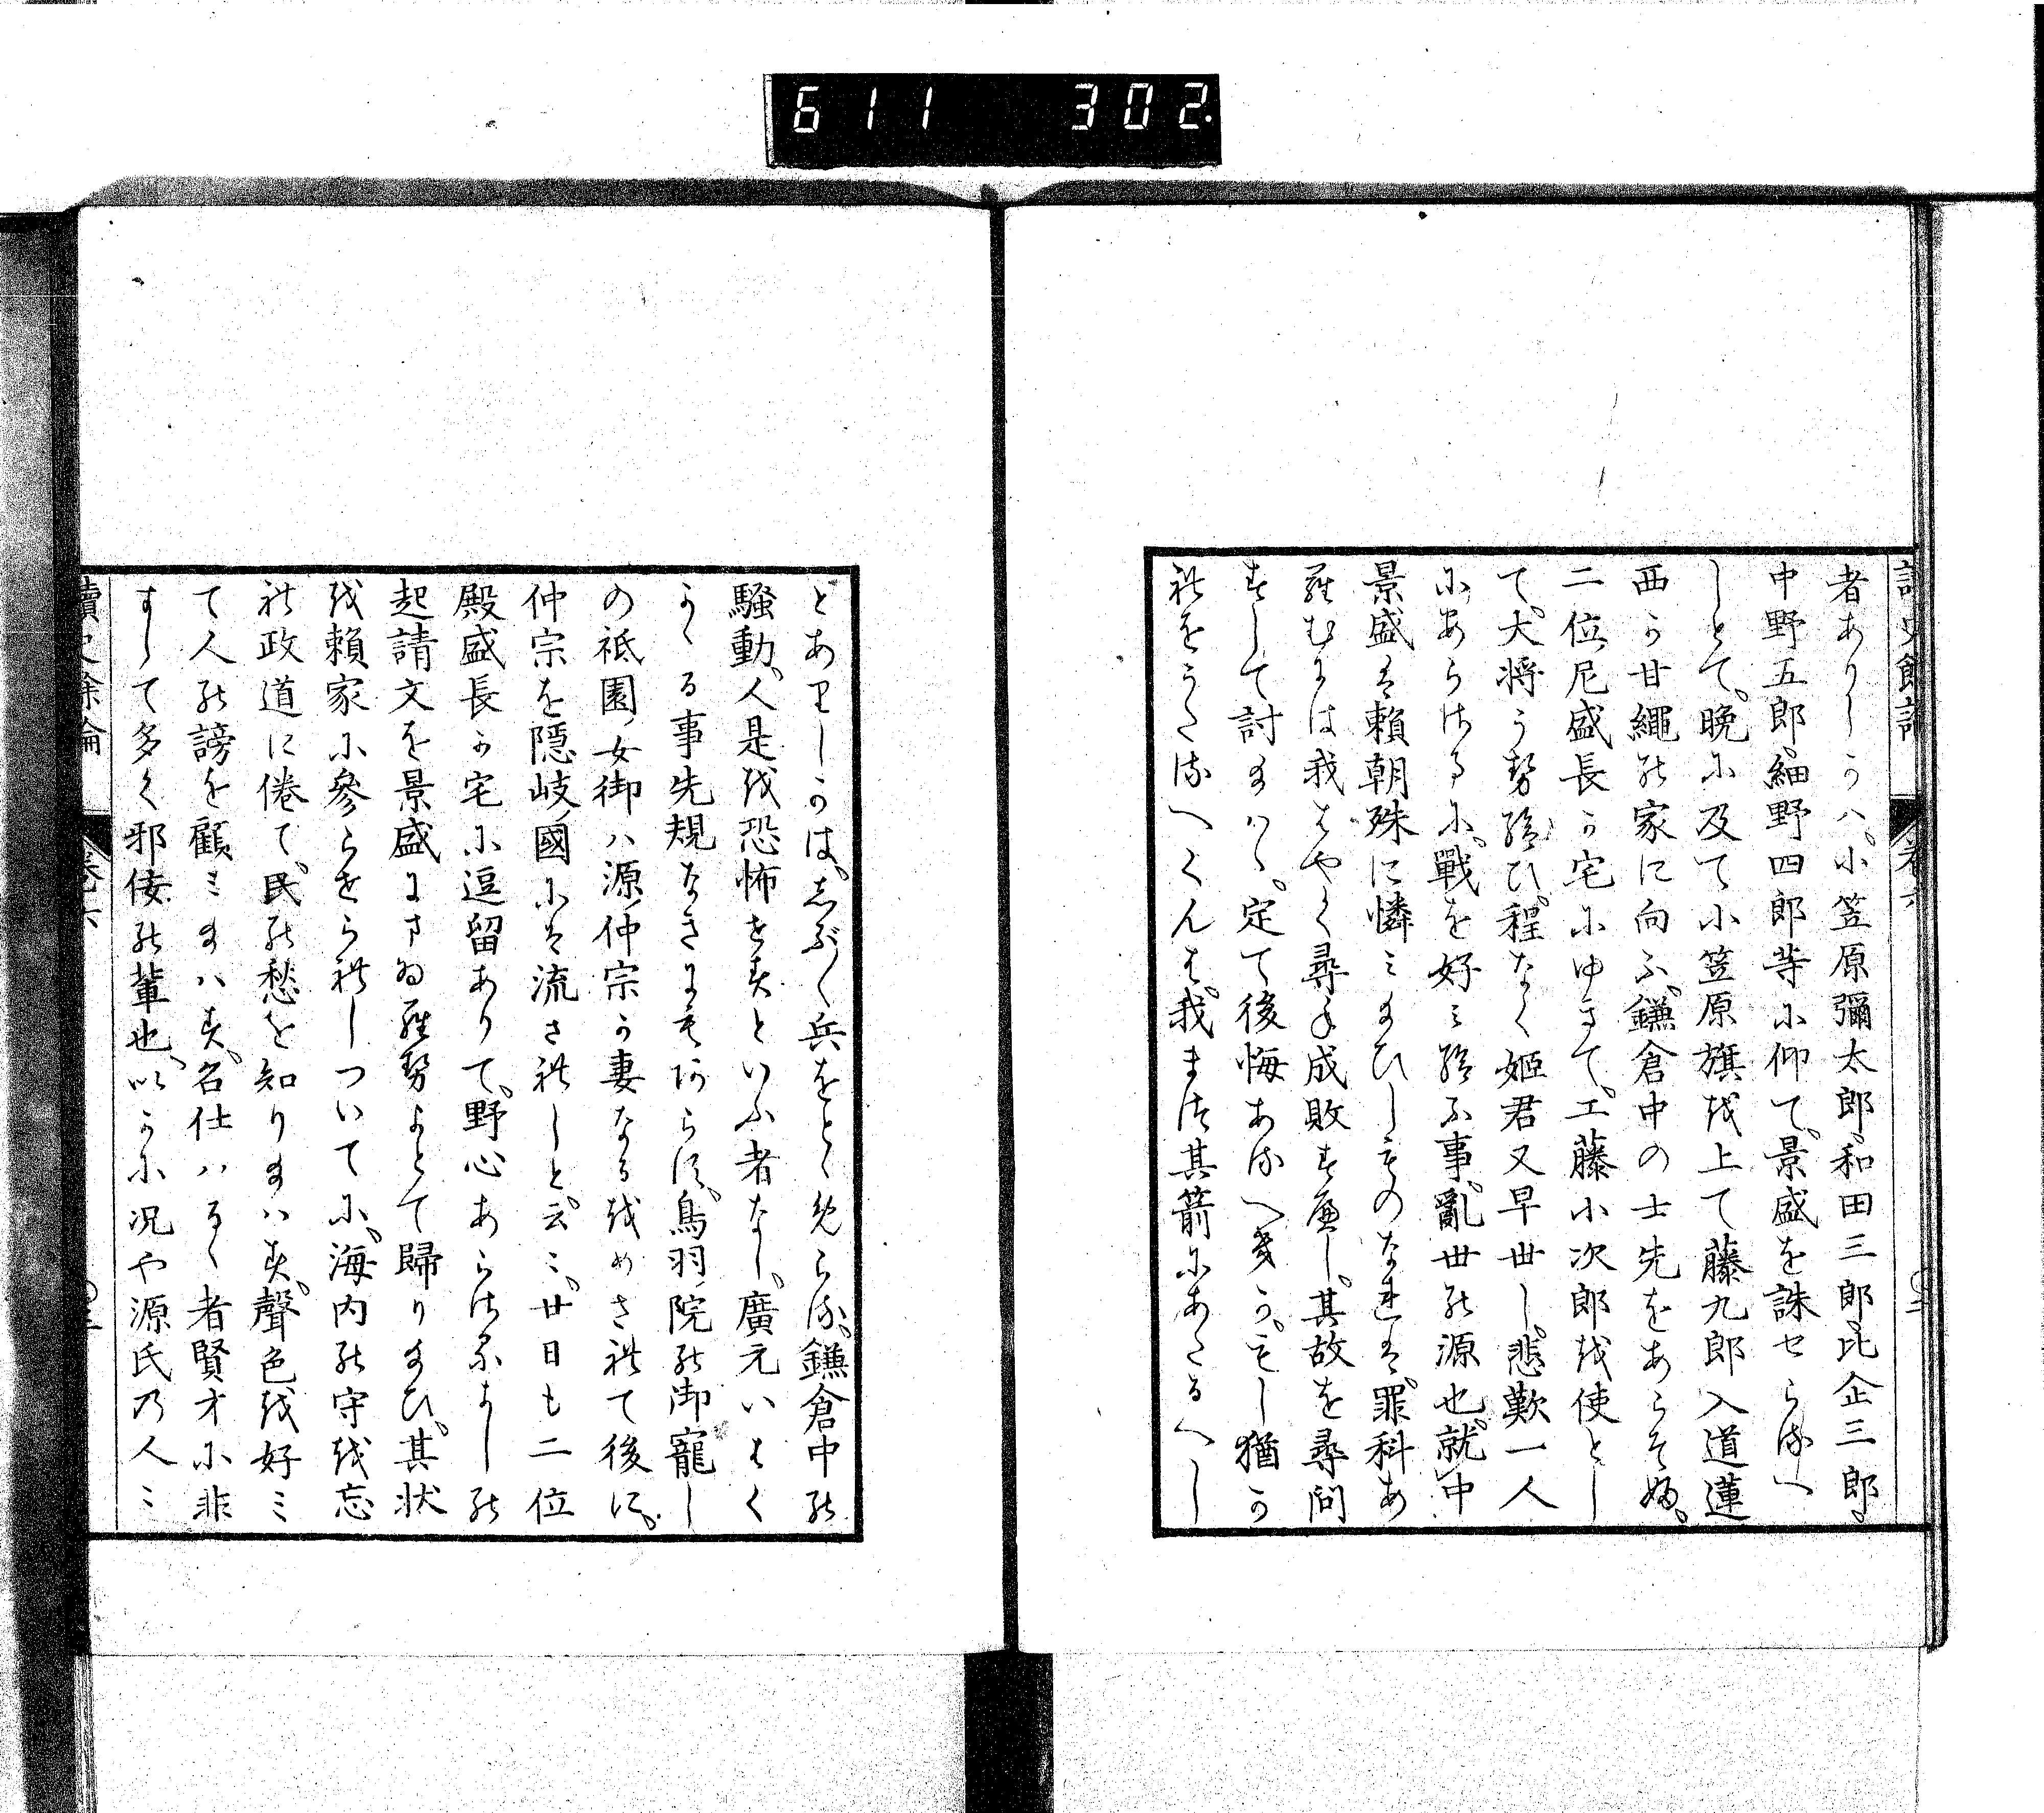 611 302
者ありしかハ。小笠原彌太郎。和田三郎。比企三郎。
中野五郎。細野四郎等に仰て。景盛を誅セらるへ
しとて。晩に及て小笠原旗を上て藤九郎入道蓮
西か甘繩の家に向ふ。鎌倉中の士先をあらそふ。
二位尼盛長か宅にゆきて。工藤小次郎を使とし
て。大将うせ給ひ。程なく姫君又早世し。悲歎一人
にあらさるに。戰を好ミ給ふ事。亂世の源也。就中
景盛は頼朝殊に憐ミ給ひしものなれは。罪科あ
らむには我はやく尋ね成敗すへし。其故を尋問
すして討給ハヽ。定て後悔あるへきか。もし猶か
れをうたるへくんは。我まつ其箭にあたるへし
とありしかは。しぶ〳〵兵をとゝめらる。鎌倉中の
騒動。人是を恐怖せすといふ者なし。廣元いはく
かゝる事先規なきにもあらす。鳥羽ノ院の御寵し
の祇園ノ女御ハ源ノ仲宗か妻なるをめされて後に。
仲宗を隱岐ノ國には流されしと云〻。廿日も二位
殿盛長か宅に逗留ありて。野心あらさるよしの
起請文を景盛にまゐらせよとて歸り給ひ。其状
を頼家に參らせられしついてに。海内の守を忘
れ政道に倦て。民の愁を知り給ハす。聲色を好ミ
て人の謗を顧ミ給ハす。召仕ハるゝ者賢才に非
すして多く邪佞の輩也。いかに况や源氏乃人〻
讀史餘論 卷六